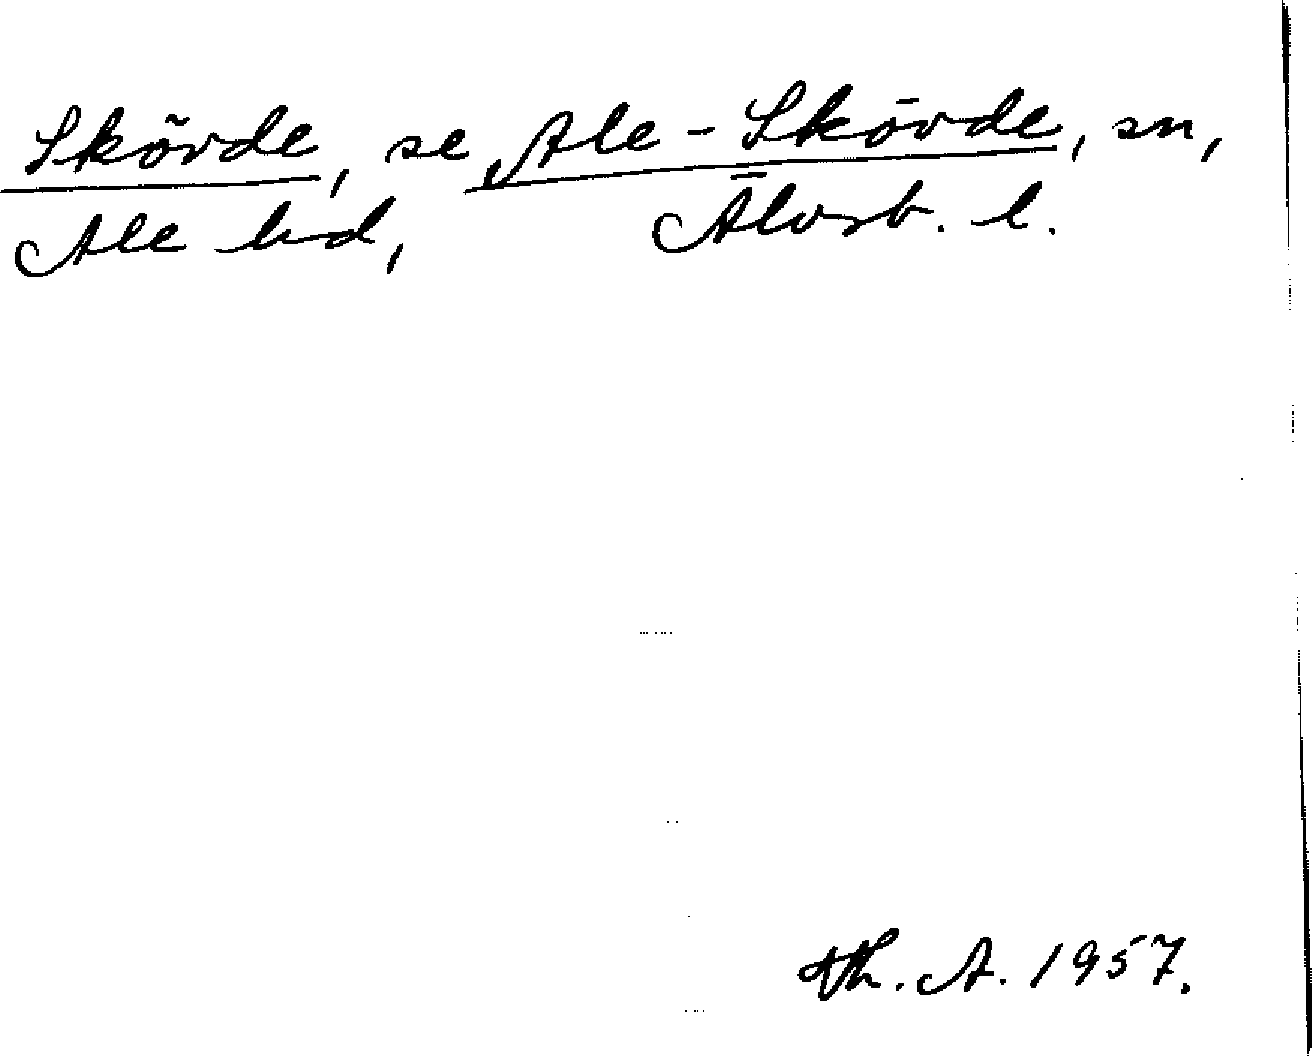 Skövde, se Ale-Skövde, sn,
Ale hd, Älvsb. l.
Th. A. 1957.